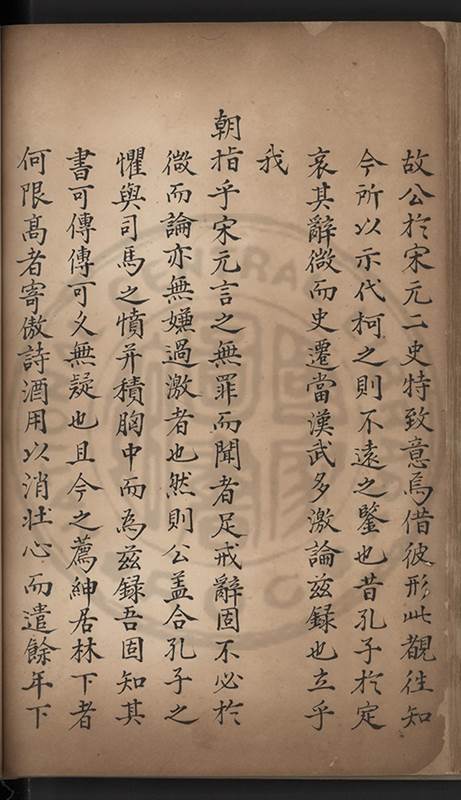 故公於宋元二史特致意焉借彼形此觀徃知
今所以示代柯之則不遠之鑒也昔孔子於定
哀其辭微而史遷當漢武多激論茲録也立乎
我
朝指乎宋元言之無罪而聞者足戒辭固不必於
微而論亦無嫌過激者也然則公盖合孔子之
懼與司馬之憤并積胸中而為茲録吾固知其
書可傳傳可久無疑也且今之薦紳居林下者
何限髙者寄傲詩酒用以消壮心而遣餘年下